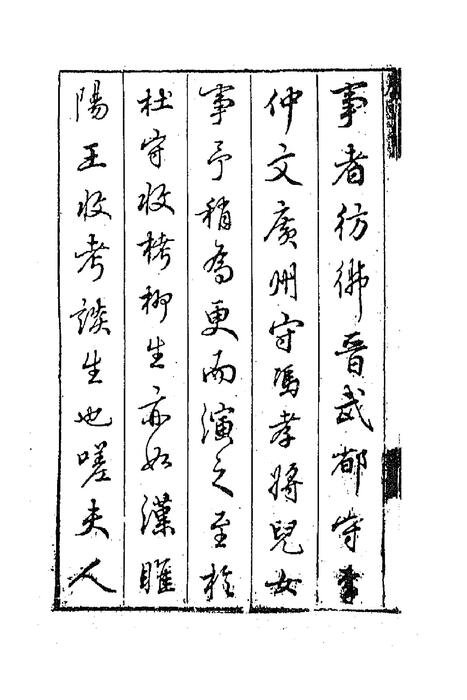 事者彷彿晉武都守李
仲文廣州守馮孝將兒女
事予稍為更而演之至於
杜守收栲柳生亦如漢睢
陽王收考談生也嗟夫人